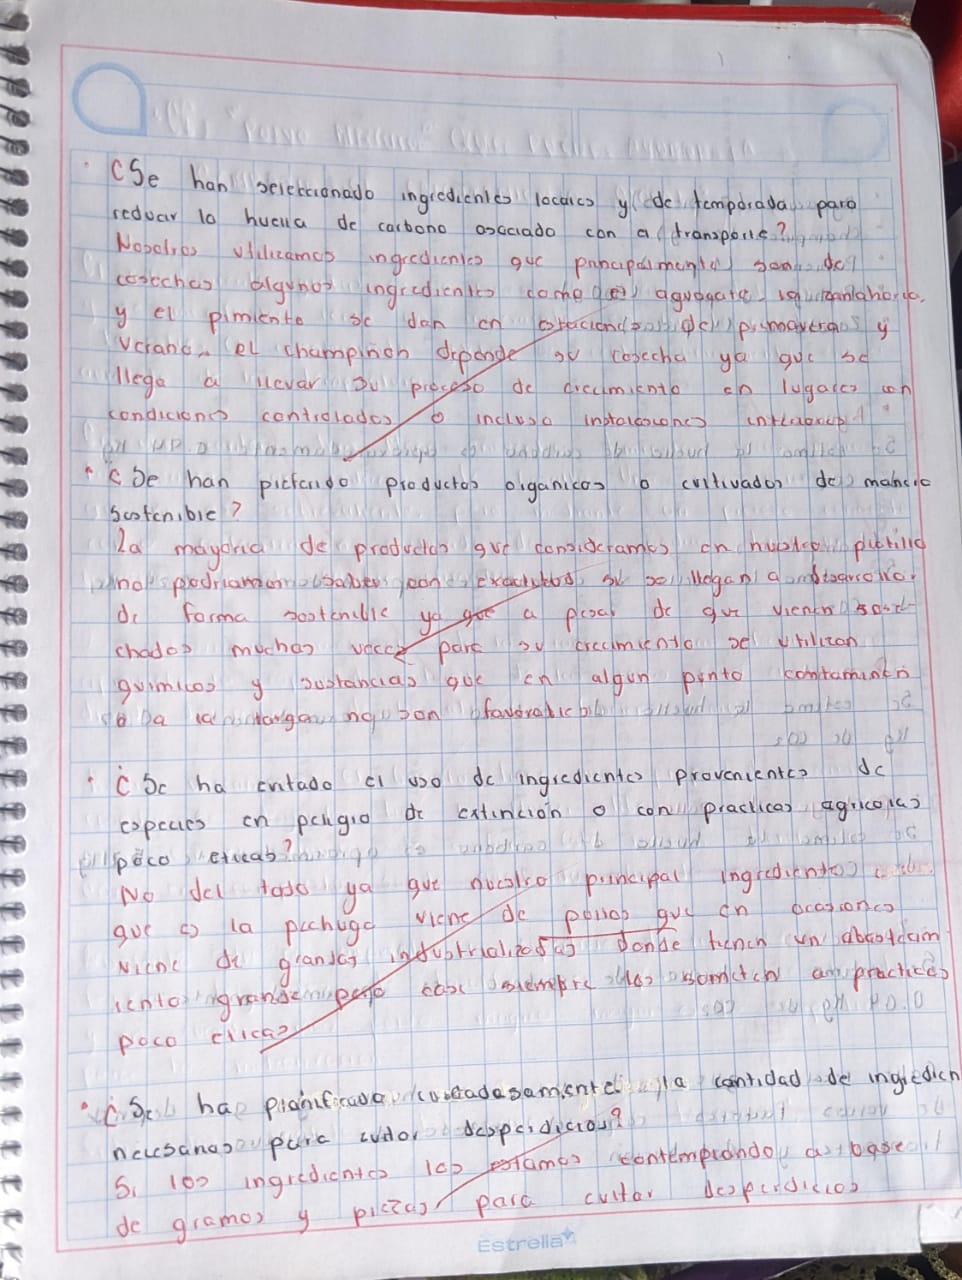 ¿Se han seleccionado ingredientes locales y de temporada para
reducir la huella de carbono asociado con a transporte?
Nosotros utilizamos ingredientes que principalmente son de
cosechas algunos ingredientes como el aguagate, la zanahoria,
y el pimiento se dan en estaciones de primavera y
verano. el champiñon depende su cosecha ya que se
llega a llevar su proceso de crecimiento en lugares con
condiciones controladas o incluso instalaciones
¿Se han preferido productos organicos o cultivados de manera
sostenible?
La mayoria de productos que consideramos en nuestro platillo
no podriamos saber con exactitud si se llegan a desarrollar
de forma sostenible ya que a pesar de que vienen cose-
chados muchas veces para su crecimiento se utilizan
quimicos y sustancias que en algun punto contaminan
o a la larga no son favorables
¿Se ha evitado el uso de ingredientes provenientes de
especies en peligro de extinción o con practicas agricolas
poco eticas?
No del todo ya que nuestro principal ingrediente
que es la pechuga viene de pollos que en ocasiones
viene de granjas industrializadas donde tienen un abastecim
iento grande pero casi siempre los someten a practicas
poco eticas
¿Se ha planificado cuidadosamente la cantidad de ingredien
necesarios para evitar desperdicios?
Si los ingredientes los estamos contemplando a base
de gramos y piezas para evitar desperdicios
Estrella